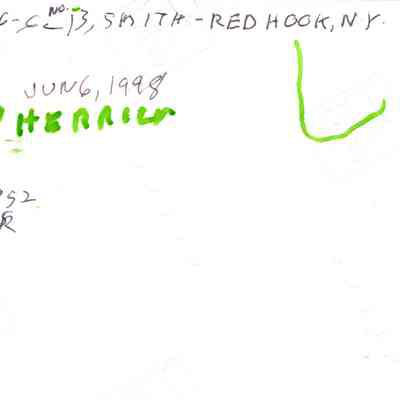 G-C No. 13, SMITH - RED HOOK, NY.
JUN 6, 1998
HERRICK
52
R